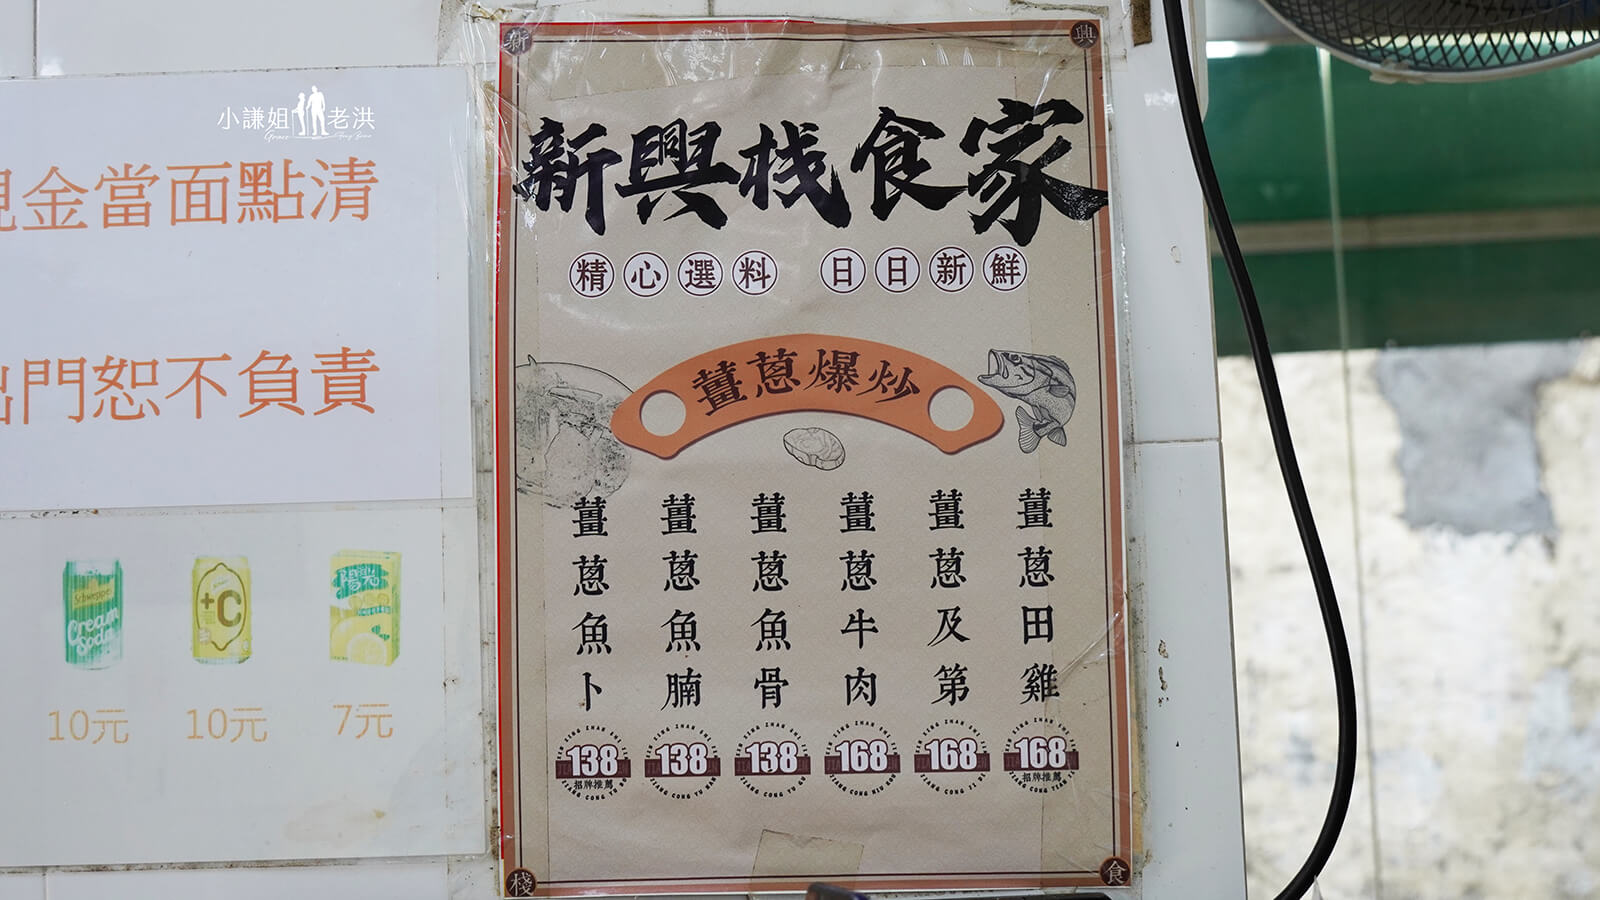 小謙姐 老洪
金當面點清
門恕不負責
Schweppes
Cream Soda
+C
陽光
10元 10元 7元
新 興
新興栈食家
精心選料 日日新鮮
薑蔥爆炒
薑蔥魚卜 138 招牌推薦
薑蔥魚腩 138
薑蔥魚骨 138
薑蔥牛肉 168
薑蔥及第 168
薑蔥田雞 168 招牌推薦
棧 食